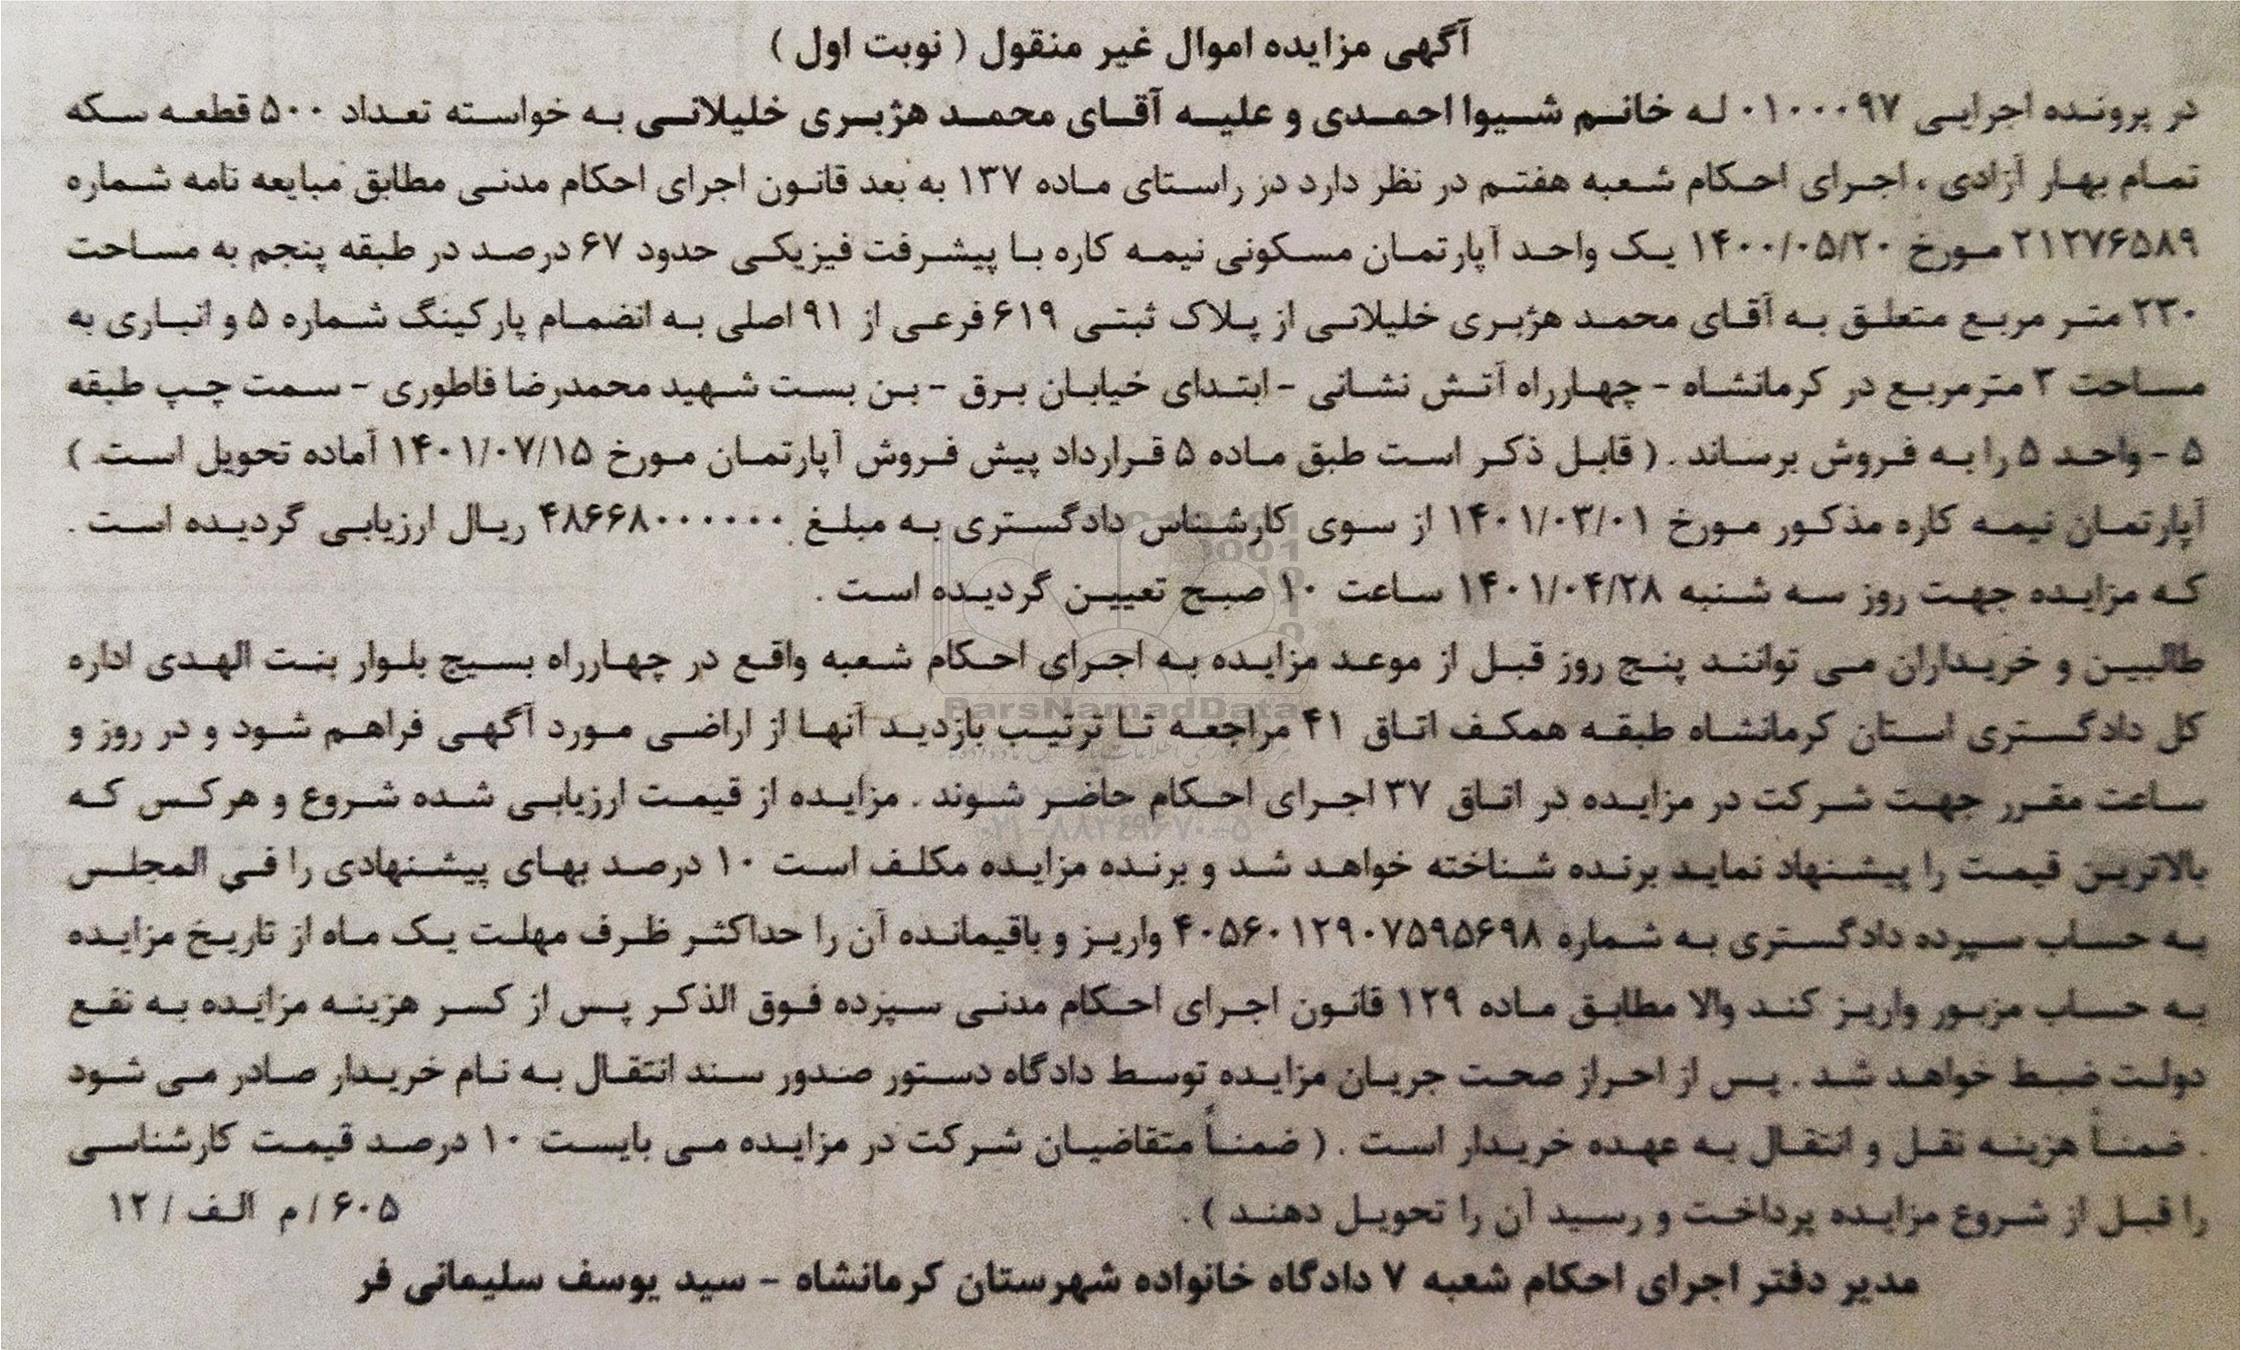 آگهی مزایده اموال غیر منقول ( نوبت اول )
در پرونده اجرایی ۰۱۰۰۰۹۷ له خانم شیوا احمدی و علیه آقای محمد هژبری خلیلانی به خواسته تعداد ۵۰۰ قطعه سکه
تمام بهار آزادی ، اجرای احکام شعبه هفتم در نظر دارد در راستای ماده ۱۳۷ به بعد قانون اجرای احکام مدنی مطابق مبایعه نامه شماره
۲۱۲۷۶۵۸۹ مورخ ۱۴۰۰/۰۵/۲۰ یک واحد آپارتمان مسکونی نیمه کاره با پیشرفت فیزیکی حدود ۶۷ درصد در طبقه پنجم به مساحت
۲۳۰ متر مربع متعلق به آقای محمد هژبری خلیلانی از پلاک ثبتی ۶۱۹ فرعی از ۹۱ اصلی به انضمام پارکینگ شماره ۵ و انباری به
مساحت ۳ مترمربع در کرمانشاه - چهارراه آتش نشانی - ابتدای خیابان برق - بن بست شهید محمدرضا فاطوری - سمت چپ طبقه
۵ - واحد ۵ را به فروش برساند . ( قابل ذکر است طبق ماده ۵ قرارداد پیش فروش آپارتمان مورخ ۱۴۰۱/۰۷/۱۵ آماده تحویل است. )
آپارتمان نیمه کاره مذکور مورخ ۱۴۰۱/۰۳/۰۱ از سوی کارشناس دادگستری به مبلغ ۴۸۶۶۸۰۰۰۰۰۰ ریال ارزیابی گردیده است .
که مزایده جهت روز سه شنبه ۱۴۰۱/۰۴/۲۸ ساعت ۱۰ صبح تعیین گردیده است .
طالبین و خریداران می توانند پنج روز قبل از موعد مزایده به اجرای احکام شعبه واقع در چهارراه بسیج بلوار بنت الهدی اداره
کل دادگستری استان کرمانشاه طبقه همکف اتاق ۴۱ مراجعه تا ترتیب بازدید آنها از اراضی مورد آگهی فراهم شود و در روز و
ساعت مقرر جهت شرکت در مزایده در اتاق ۳۷ اجرای احکام حاضر شوند . مزایده از قیمت ارزیابی شده شروع و هرکس که
بالاترین قیمت را پیشنهاد نماید برنده شناخته خواهد شد و برنده مزایده مکلف است ۱۰ درصد بهای پیشنهادی را فی المجلس
به حساب سپرده دادگستری به شماره ۴۰۵۶۰۱۲۹۰۷۵۹۵۶۹۸ واریز و باقیمانده آن را حداکثر ظرف مهلت یک ماه از تاریخ مزایده
به حساب مزبور واریز کند والا مطابق ماده ۱۲۹ قانون اجرای احکام مدنی سپرده فوق الذکر پس از کسر هزینه مزایده به نفع
دولت ضبط خواهد شد . پس از احراز صحت جریان مزایده توسط دادگاه دستور صدور سند انتقال به نام خریدار صادر می شود
. ضمناً هزینه نقل و انتقال به عهده خریدار است . ( ضمناً متقاضیان شرکت در مزایده می بایست ۱۰ درصد قیمت کارشناسی
را قبل از شروع مزایده پرداخت و رسید آن را تحویل دهند ) . ۶۰۵ / م الف / ۱۲
مدیر دفتر اجرای احکام شعبه ۷ دادگاه خانواده شهرستان کرمانشاه - سید یوسف سلیمانی فر
ParsNamadData
۰۲۱-۸۸۳۴۹۶۷۰-۵